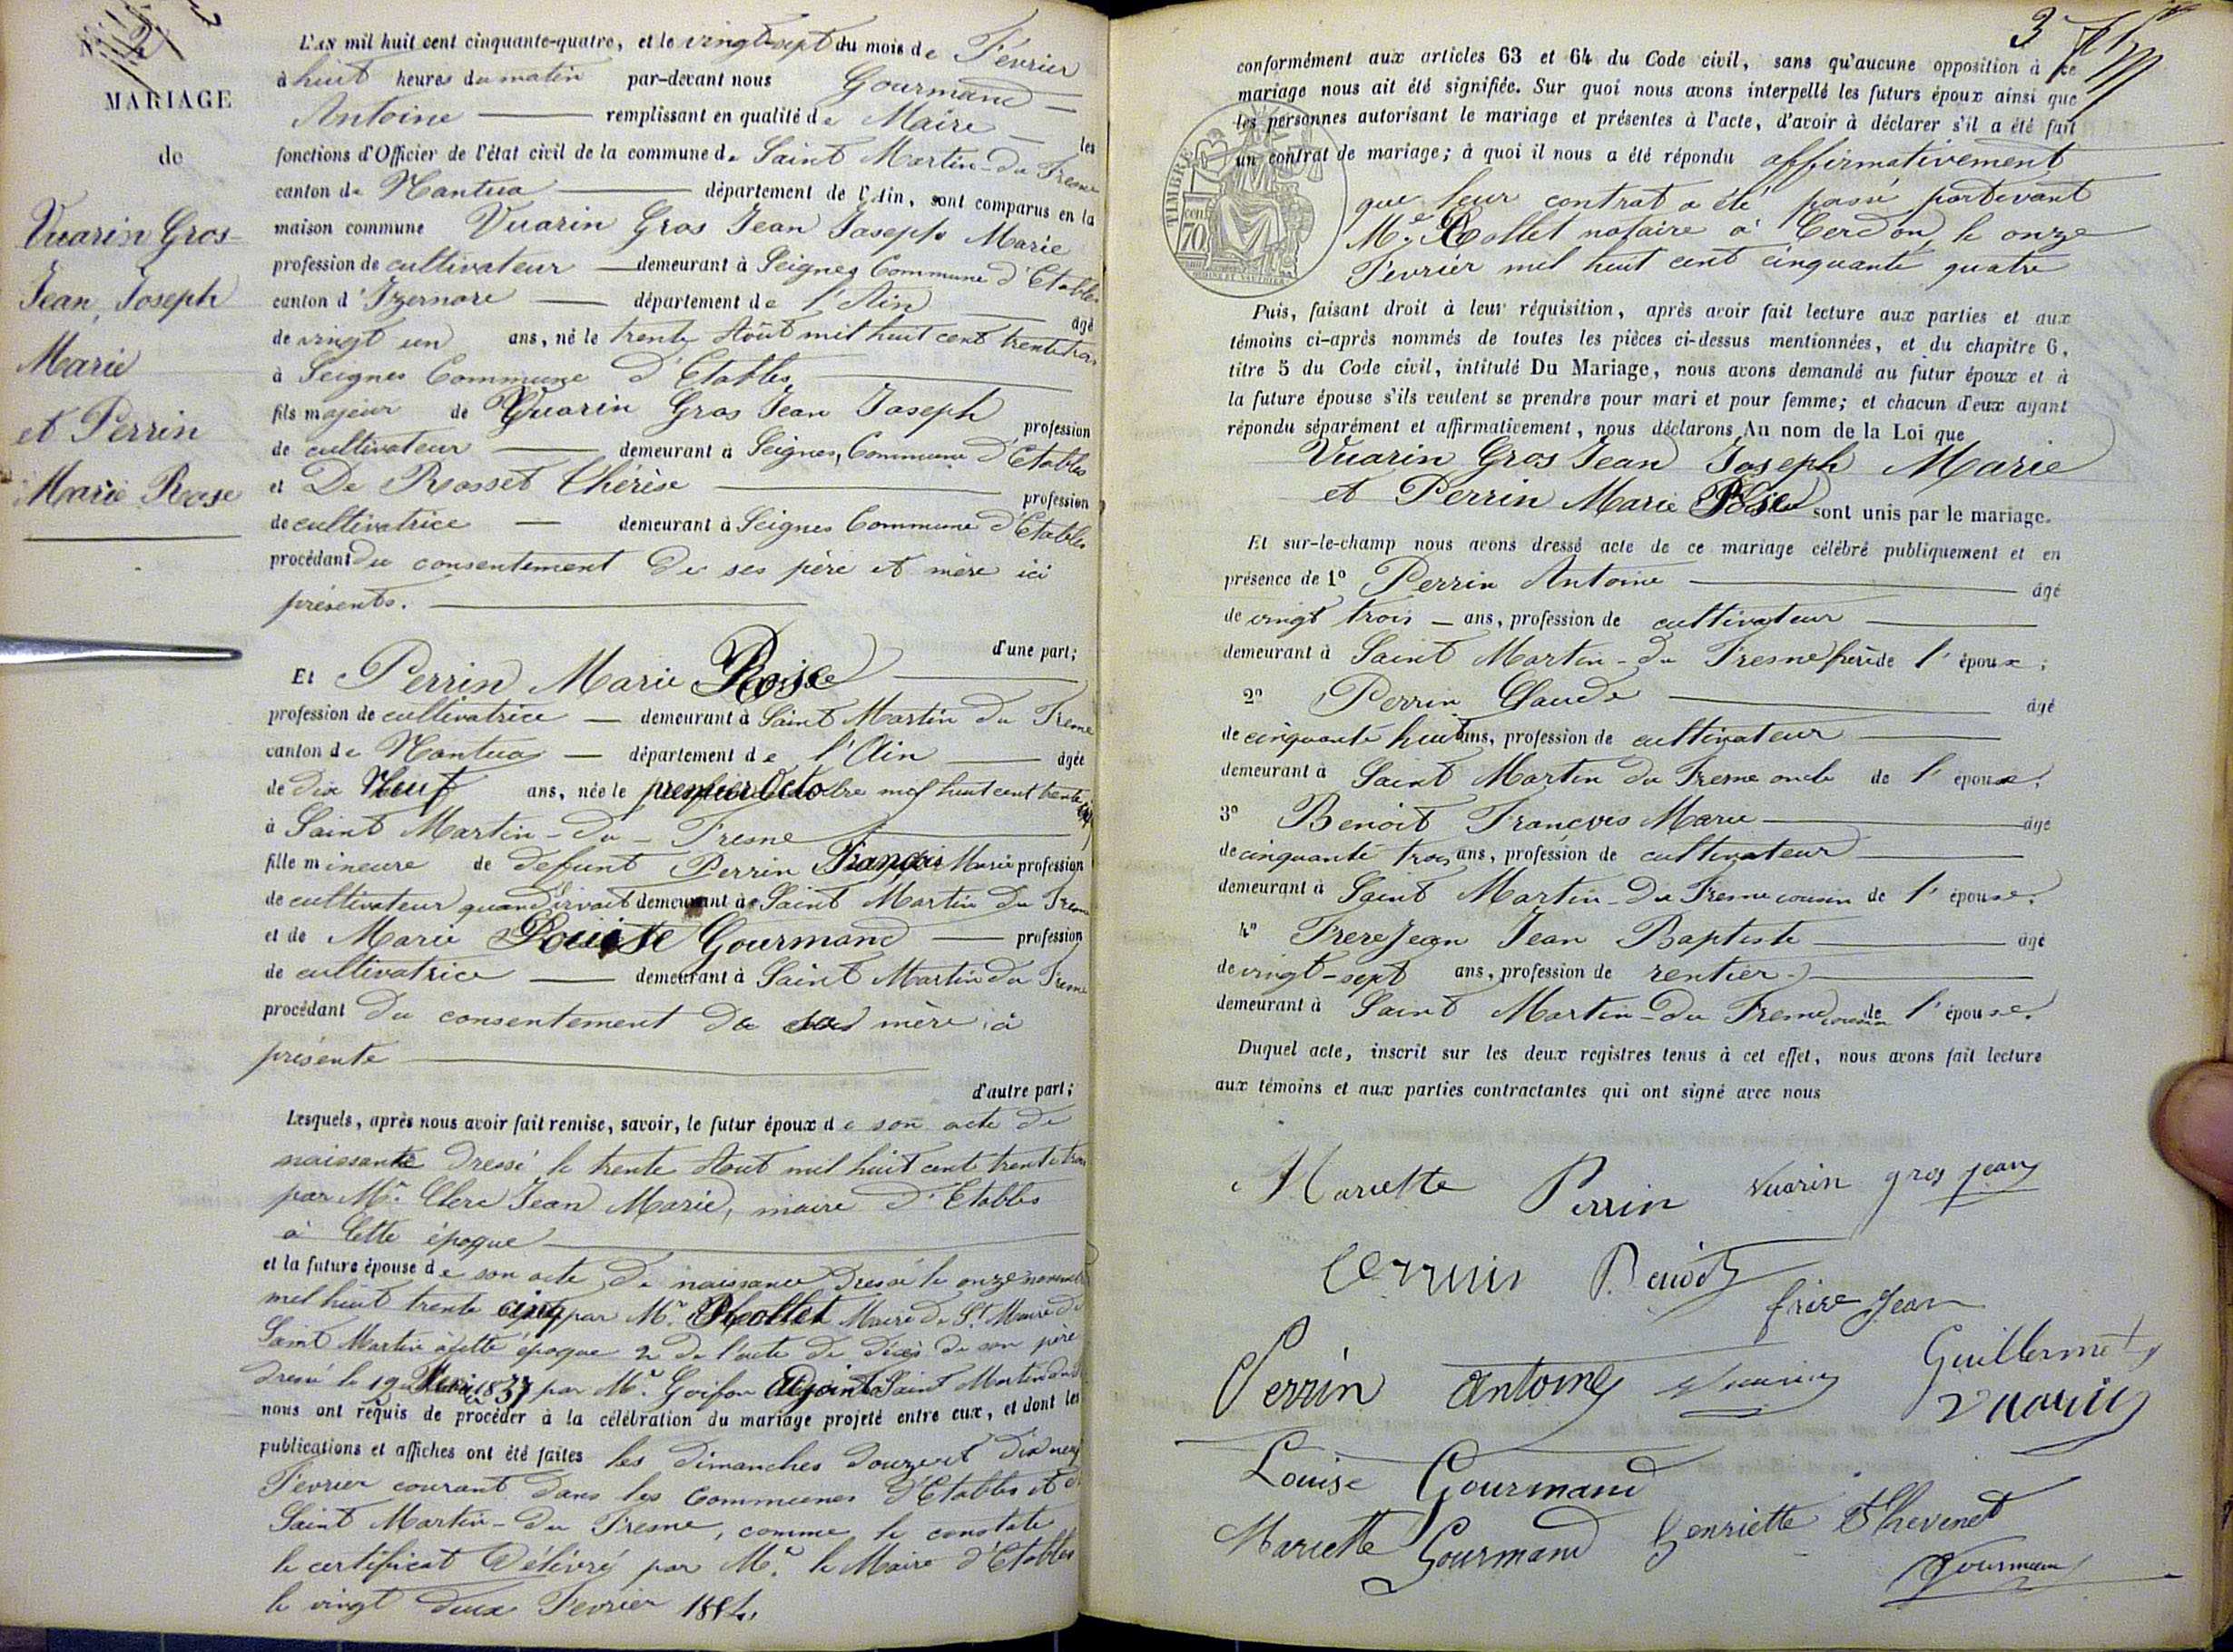 MARIAGE
de
Vuarin Gros
Jean, Joseph
Marie
et Perrin
Marie Rose
L'an mil huit cent cinquante-quatre, et le vingt-sept du mois de Février
à huit heures du matin par-devant nous Gourmand
Antoine remplissant en qualité de Maire les
fonctions d'Officier de l'état civil de la commune de Saint Martin-du Fresne
canton de Nantua département de l'Ain, sont comparus en la
maison commune Vuarin Gros Jean Joseph Marie
profession de cultivateur demeurant à Seignes Commune d'Etables
canton d'Izernore département de l'Ain âgé
de vingt un ans, né le trente Août mil huit cent trente trois
à Seignes Commune d'Etables
fils majeur de Vuarin Gros Jean Joseph profession
de cultivateur demeurant à Seignes, Commune d'Etables
et De Rosset Thérèse profession
de cultivatrice demeurant à Seignes Commune d'Etables
procédant du consentement de ses père et mère ici
présents.
d'une part;
Et Perrin Marie Rose
profession de cultivatrice demeurant à Saint Martin du Fresne
canton de Nantua département de l'Ain âgée
de dix Neuf ans, née le premier Octobre mil huit cent trente
à Saint Martin-du-Fresne
fille mineure de defunt Perrin François Marie profession
de cultivateur quand vivait demeurant à Saint Martin du Fresne
et de Marie Louise Gourmand profession
de cultivatrice demeurant à Saint Martin du Fresne
procédant du consentement de sa mère ici
présente
d'autre part;
Lesquels, après nous avoir fait remise, savoir, le futur époux de son acte de
naissante dressé le trente Aout mil huit cent trente trois
par Mr. Clerc Jean Marie, maire d'Etables
à Cette époque
et la future épouse de son acte de naissance dressé le onze novembre
mil huit trente cinq par Mr. Mollet Maire de St. Maire de
Saint Martin à cette époque 2e de l'acte de décès de son père
dressé le 19 1837 par Mr. Goifon Adjoint Saint Martin du
nous ont requis de procéder à la célébration du mariage projeté entre eux, et dont les
publications et affiches ont été faites les dimanches douze et dix neuf
Fevrier courant dans les Communes d'Etables et de
Saint Martin-du Fresne, comme le constate
le certificat Délivré par Mr. le Maire d'Etables
le vingt deux Fevrier 1854,
3
conformément aux articles 63 et 64 du Code civil, sans qu'aucune opposition à ce
mariage nous ait été signifiée. Sur quoi nous avons interpellé les futurs époux ainsi que
les personnes autorisant le mariage et présentes à l'acte, d'avoir à déclarer s'il a été fait
un contrat de mariage; à quoi il nous a été répondu affirmativement
que leur contrat a été passé pardevant
Me. Rollet notaire à Cerdon le onze
Fevrier mil huit cent cinquante quatre
TIMBRE
cent
70
Puis, faisant droit à leur réquisition, après avoir fait lecture aux parties et aux
témoins ci-après nommés de toutes les pièces ci-dessus mentionnées, et du chapitre 6,
titre 5 du Code civil, intitulé Du Mariage, nous avons demandé au futur époux et à
la future épouse s'ils veulent se prendre pour mari et pour femme; et chacun d'eux ayant
répondu séparément et affirmativement, nous déclarons Au nom de la Loi que
Vuarin Gros Jean Joseph Marie
et Perrin Marie Rose sont unis par le mariage.
Et sur-le-champ nous avons dressé acte de ce mariage célébré publiquement et en
présence de 1º Perrin Antoine âgé
de vingt trois ans, profession de cultivateur
demeurant à Saint Martin-du Fresne frère de l'épouse;
2º Perrin Claude âgé
de cinquante huit ans, profession de cultivateur
demeurant à Saint Martin du Fresne oncle de l'épouse.
3º Benoit François Marie âgé
de cinquante trois ans, profession de cultivateur
demeurant à Saint Martin-du Fresne cousin de l'épouse.
4º Frere Jean Jean Baptiste âgé
de vingt-sept ans, profession de rentier
demeurant à Saint Martin-Du Fresne cousin de l'épouse.
Duquel acte, inscrit sur les deux registres tenus à cet effet, nous avons fait lecture
aux témoins et aux parties contractantes qui ont signé avec nous
Mariette Perrin Vuarin gros jean
Benoit
frère Jean
Perrin Antoine Guillermet
Vuarin
Louise Gourmand
Mariette Gourmand Henriette Thevenet
Gourmand